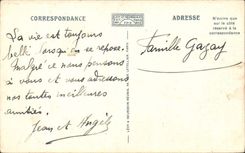 CORRESPONDANCE
ADRESSE
N'écrire que
sur le côté
réservé à la
correspondance
La vie est toujours
belle lorsqu'on se repose.
Malgré ce nous pensons
à vous et vous adressons
nos toutes meilleures
amitiés.
Jean et
Famille Gagay